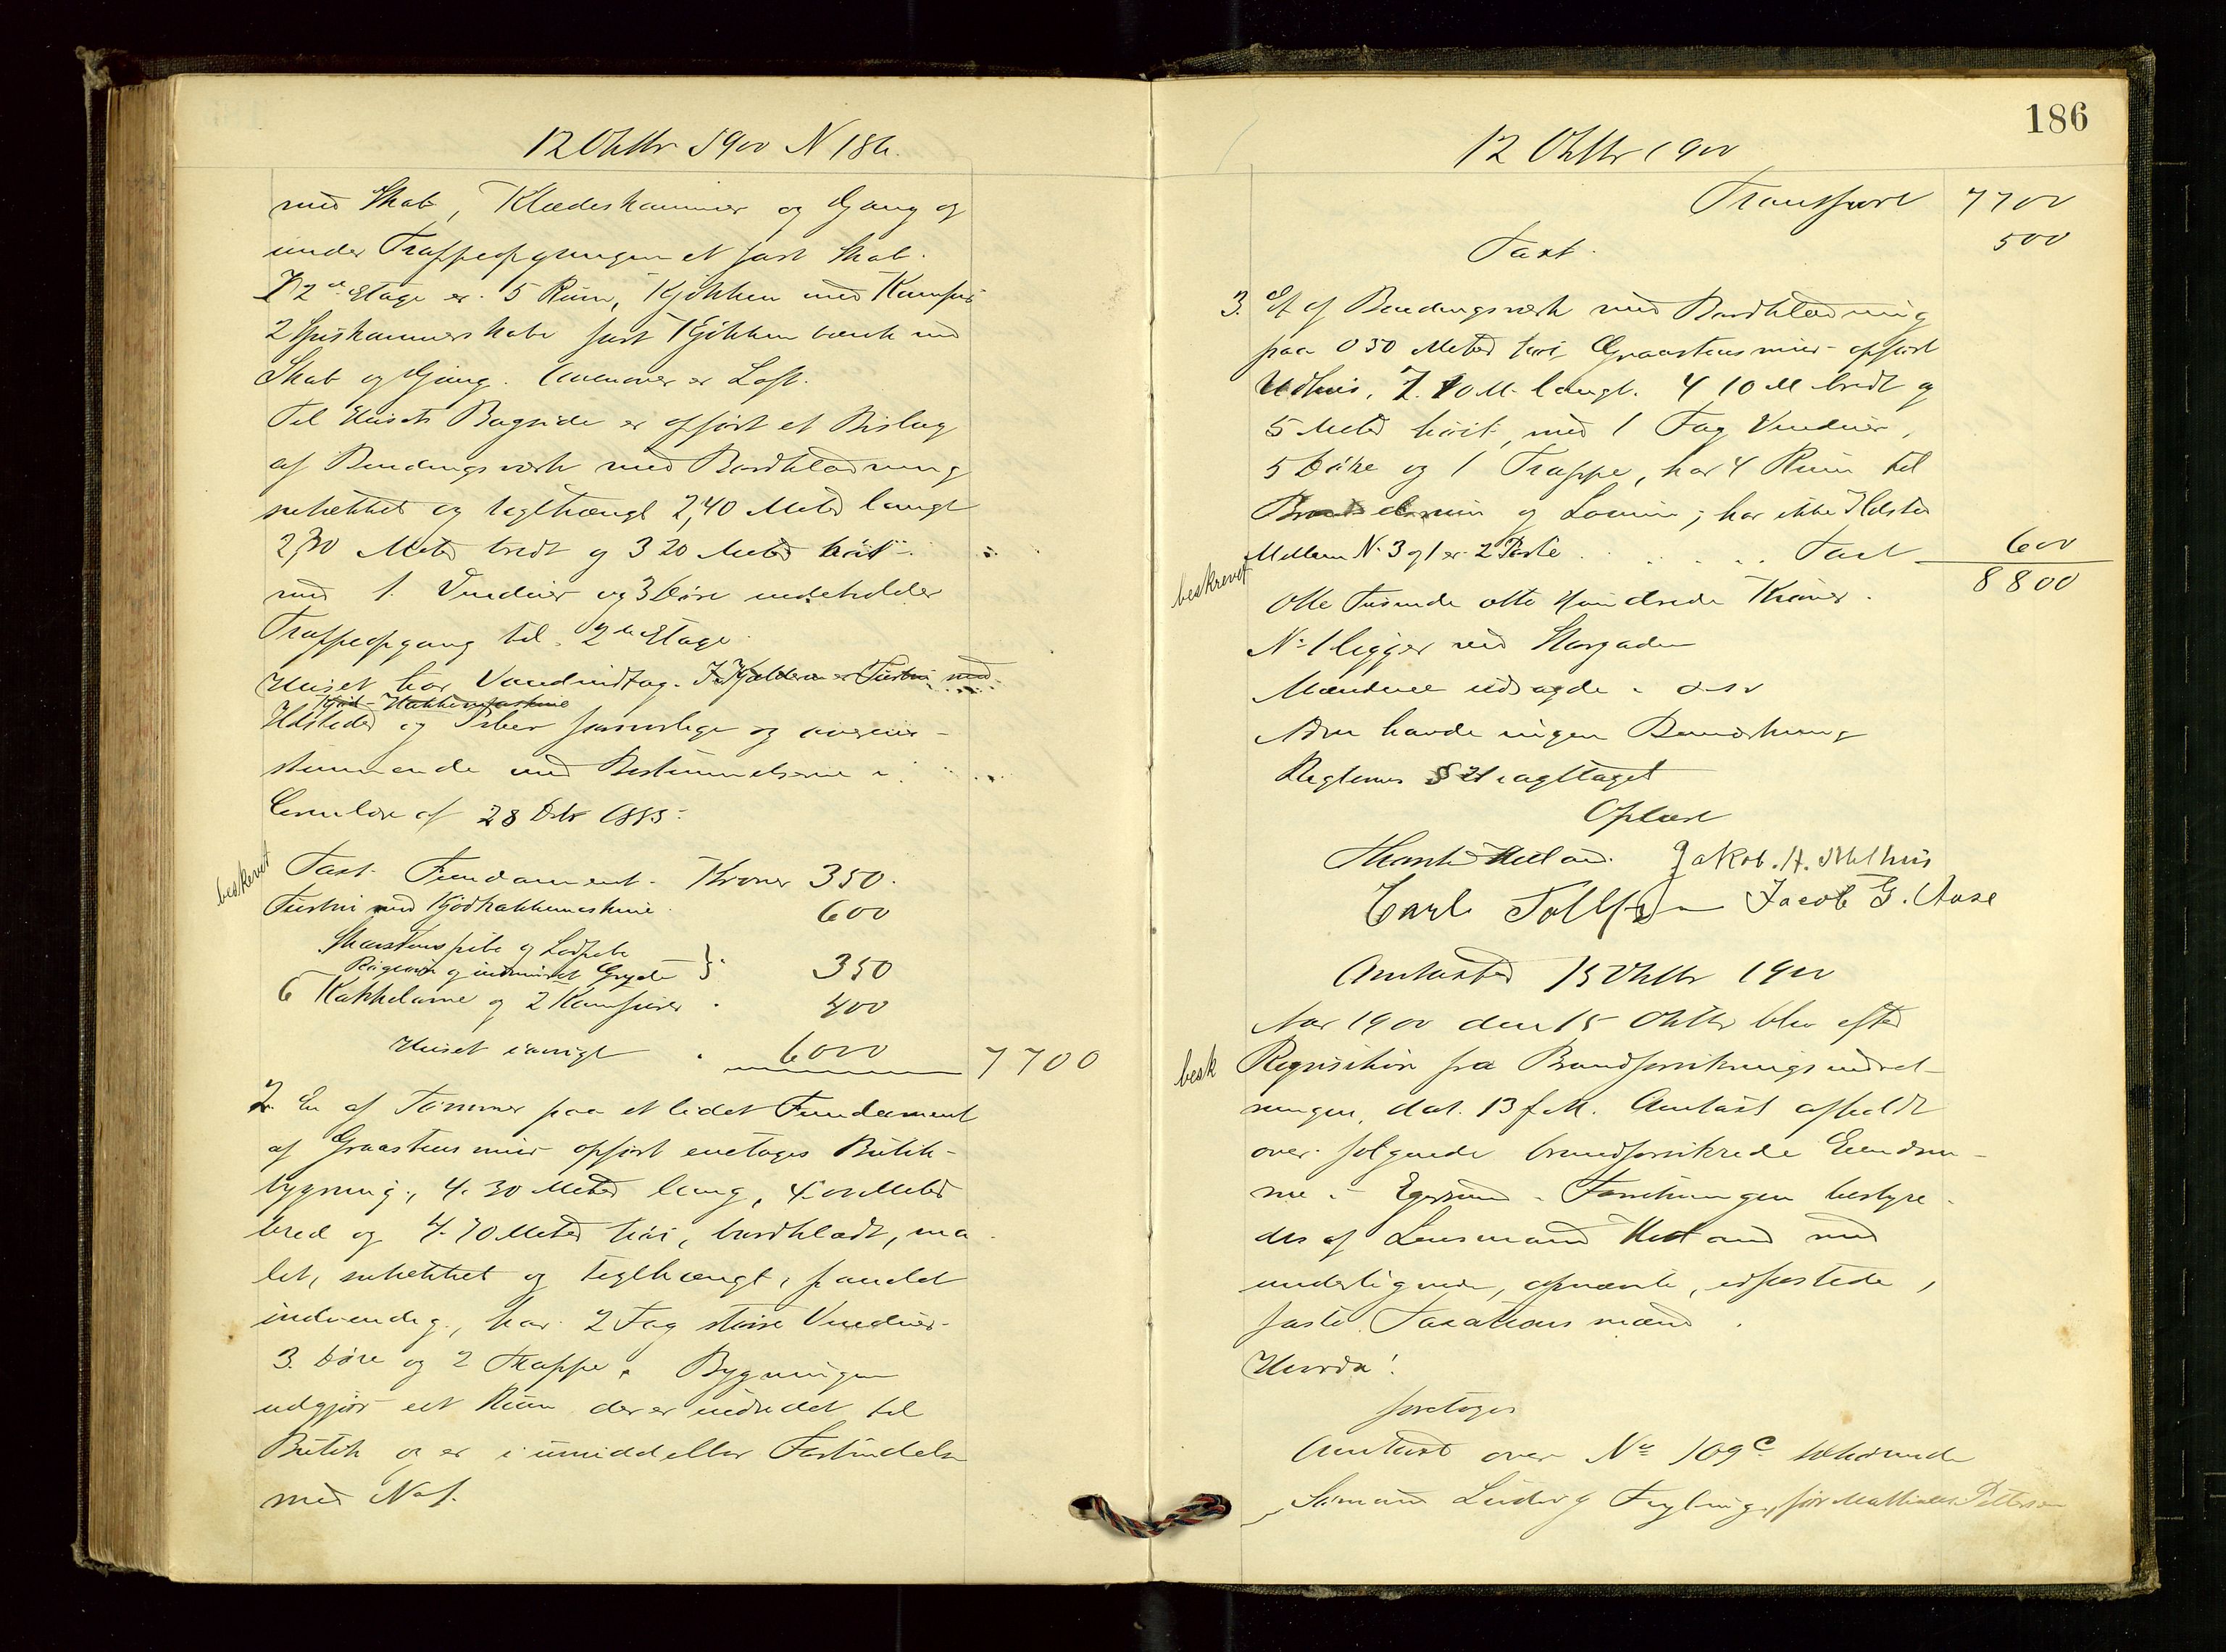 12 Oktbr 1900 N 186.
med Skab, Klædeskammer og Gang og
under Trappeopgangen et fast Skab.
I 2den Etage er 5 Rum, Kjøkken med Komfur
2 Spiskammerskabe fast Kjøkkenbænk med
Skab og Gang. Ovenover er Loft.
Til Husets Bagside er opført et Bislag
af Bindingsværk med Bordklædning
suhættet og teglhængt 2,40 Meter langt
2,30 Meter bredt og 3 20 Meter höit
med 1 Vinduer og 3 Döre indeholder
Trappeopgang til 2den Etage.
Huset har Vandindtag. I Kjælderen er Turbin med
Kjød-Hakkemaskine
Ildsteder og Piber forsvarlige og overens-
stemmende med Bestemmelserne i
Cirkulære af 28 Dcbr 1885.
beskrevet
Taxt. Fundament. Kroner 350.
Turbin med Kjödhakkemaskine 600
Skorstenspibe og Lodpibe
Bageovn og indmuret Gryde } 350
6 Kakkelovne og 2 Komfurer 400
Huset iövrigt 6000 7700
2. En af Tömmer paa et lidet Fundament
af Graastensmur opfört enetages Butik-
bygning, 4.30 Meter lang, 4.00 Meter
bred og 4.70 Meter höi, bordklædt, ma-
let, suhættet og teglhængt, panelet
indvendig, har 2 Fag større Vinduer
3. Döre og 2 Trappe. Bygningen
udgjör eet Rum der er indredet til
Butik og er i umiddelbar Forbindelse
med No 1.
186
12 Oktbr 1900
Transport 7700
Taxt. 500
3. Et af Bindingsværk med Bordklædning
paa 0 50 Meter höi Graastensmur opfört
Udhus, 7.10 M. langt. 4 10 M bredt og
5 Meter höit, med 1 Fag Vinduer,
5 Döre og 1 Trappe, har 4 Rum til
og ; har ikke Ildsted
Mellem No 3 og 1 er 2 Porte. Taxt 600
beskrevet
Otte Tusinde otte Hundrede Kroner. 8800
No 1 ligger ved Storgaden
Mændene udsagde o. s. v
havde ingen Bemærkning
Reglernes § 21 iagttaget
Oplæst
Jakob. H. Melhus
Carl Tollefsen Jacob G. Aase
Omtaxter 15 Oktbr 1900
Aar 1900 den 15 Oktbr blev efter
besk
Requisition fra Brandforsikringsindret-
ningen, dat. 13 f. M. Omtaxt afholdt
over fölgende brandforsikrede Eiendom-
me i Egersund. Forretningen bestyre-
des af Lensmand Hetland med
undertegnede, opnævnte, edfæstede,
faste Taxationsmænd.
Hvorda!
foretoges
Omtaxt over No 109c tilhörende
Sömand Ludvig Fuglring, för Mathias Pettersen